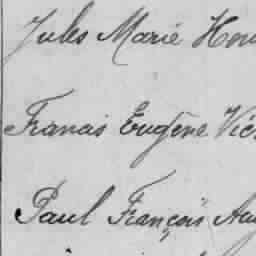 Jules Marie Hon
Francis Eugène Vic
Paul François Aug